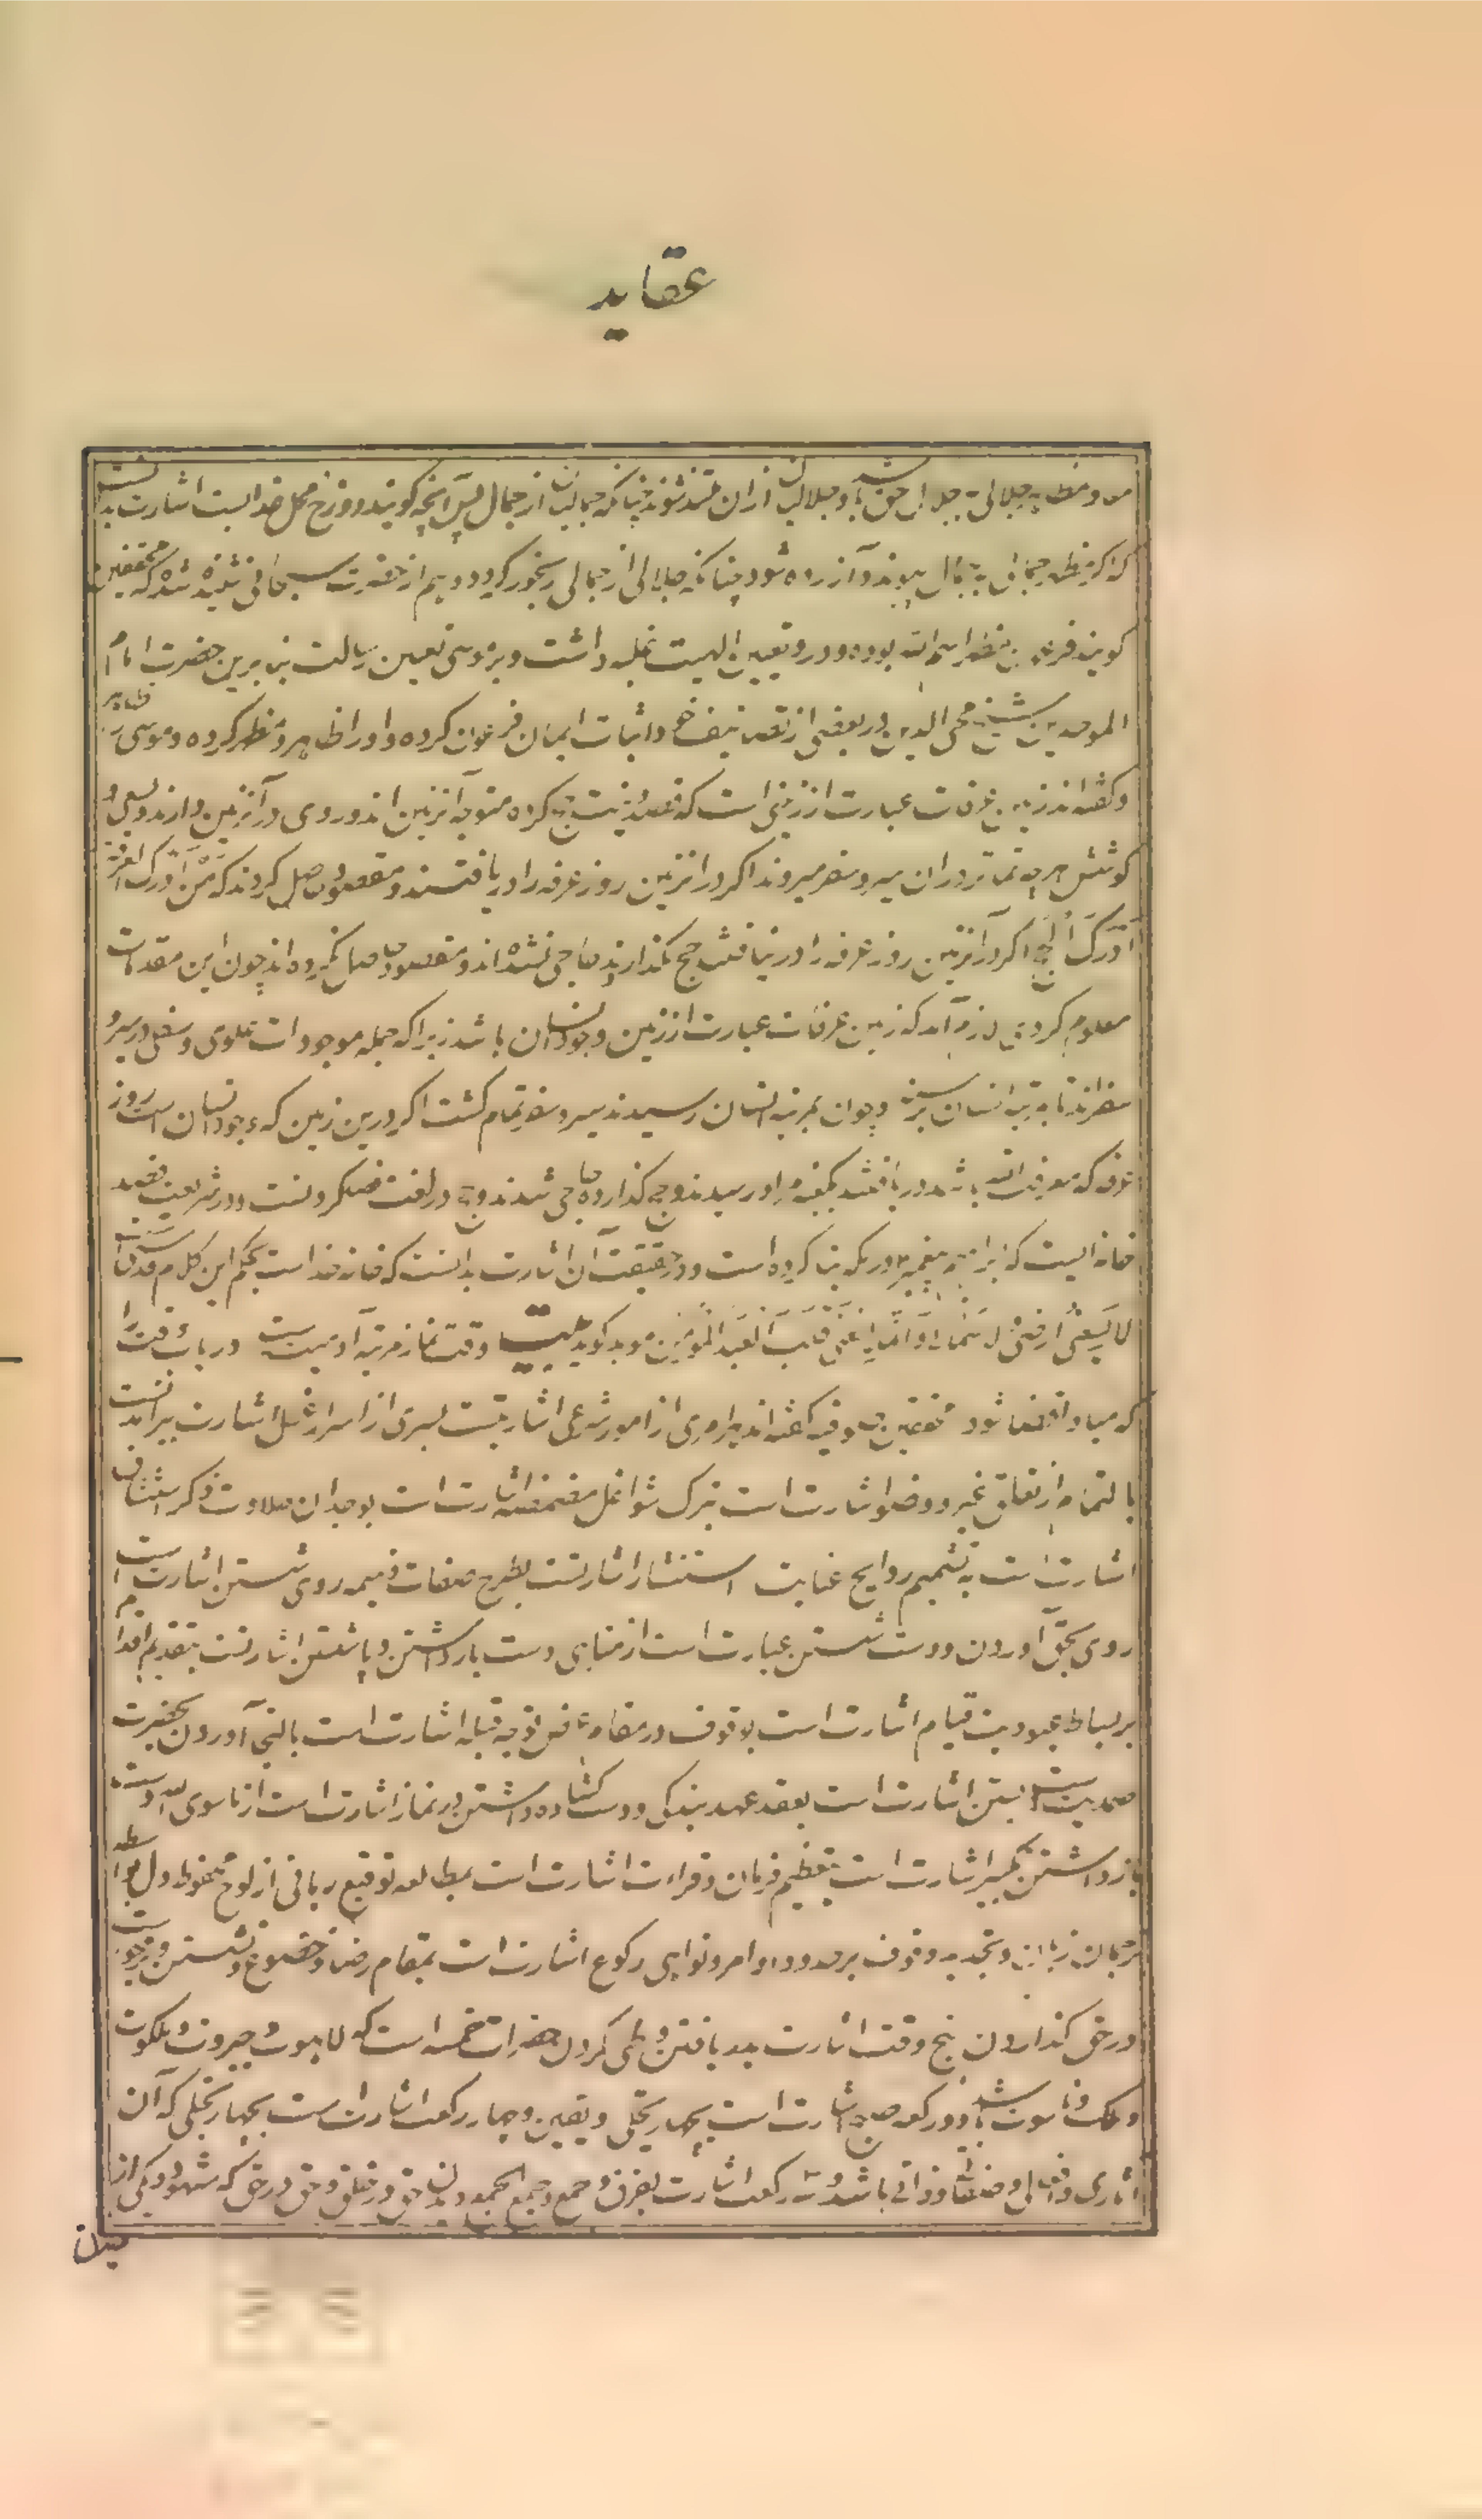 عقاید
و مظهر جلالی جلال حق باشد و جلالیان از آن متلذذ شوند چنانکه جمالیان از جمال پس آنچه گویند دوزخ محل خداست اشارت بدانست
که اگر مظهر جمالی بجلال پیوندد آزرده شود چنانکه جلالی از جمالی رنجور گردد و هم از حضرت سبحانی شنیده شد که محققین
گویند فرعون مظهر اسم الله بوده و در و تعین الهیت غلبه داشت و بر موسی تعین رسالت بنابرین حضرت امام
الموحدین شیخ محی الدین در بعضی از تصانیف خود اثبات ایمان فرعون کرده و او را ظاهر و مظهر کرده و موسی را ظاهر
و گفته‌اند زمین عرفات عبارت از زمینی است که قصد و نیت حج کرده متوجه آنزمین اند و روی در آنزمین دارند و بسعی و
کوشش هر چه تمامتر در آن سیر و سفر میروند اگر در آنزمین روز عرفه را دریافتند و مقصود حاصل کردند که من ادرک العرفة
ادرک الحج اگر در آنزمین روز عرفه را در نیافتند حج نگذارند حاجی نشده‌اند و مقصود حاصل نکرده‌اند چون این مقدمات
معلوم کردی لازم آمد که زمین عرفات عبارت از زمین وجود انسان باشد زیرا که جمله موجودات علوی و سفلی در سیر و
سفراند تا بمرتبه انسان رسند و چون بمرتبه انسان رسیدند سیر و سفر تمام گشت اگر درین زمین که وجود انسان است روز
عرفه که معرفت الله باشد دریافتند بکعبه مراد رسیدند و حج گذارده حاجی شدند و حج در لغت قصد کردنست و در شریعت قصد
خانه ایست که ابراهیم پیغمبر در مکه بنا کرده است و در حقیقت آن اشارت بدانست که خانه خداست بحکم این کلام قدسی
لا یسعنی ارضی و لا سمائی و انما یسعنی قلب العبد المؤمن موبد گوید بیت وقت نماز مرتبه آدمیت است دریاب وقت را
که مبادا قضا شود محققین صوفیه گفته‌اند هر امری از امور شرعی اشارتیست بسری از اسرار غسل اشارت بپراندنست
بالتمام از تعلق غیر و وضو اشارت است بترک شواغل مضمضه اشارت است بوجدان حلاوت ذکر استنشاق
اشارت است به تشمیم روایح عنایت استنثار اشارتست بطرح صفات ذمیمه روی شستن اشارت است
روی بحق آوردن و دست شستن عبارت است از مناهی دست بازداشتن و پا شستن اشارتست بتقدیم اقدام
بر بساط عبودیت قیام اشارت است بوقوف در مقام توجه قبله اشارت است بالتجا آوردن بحضرت
صمدیت دست بستن اشارت است بعقد عهد بندگی و دست گشاده داشتن در نماز اشارت است از ماسوی الله دست
بازداشتن تکبیر اشارت است بتعظیم فرمان و قراءت اشارت است بمطالعه توقیع ربانی از لوح محفوظ دل بواسطه
ترجمان زبان و تجدید وقوف بر حدود اوامر و نواهی رکوع اشارت است بمقام رضا و خضوع و نشستن
در حق گذاردن پنج وقت اشارت بدریافتن و طی کردن حضرات خمسه است که لاهوت و جبروت و ملکوت
و ملک و ناسوت باشد و دو رکعت صبح اشارت است بتجلی و تعین و چهار رکعت اشارت است بچهار تجلی که آن
آثاری و افعالی و صفاتی و ذاتی باشد و سه رکعت اشارت بفرق و جمع و جمع الجمع حق در خلق و حق در حق که شهود یکی از